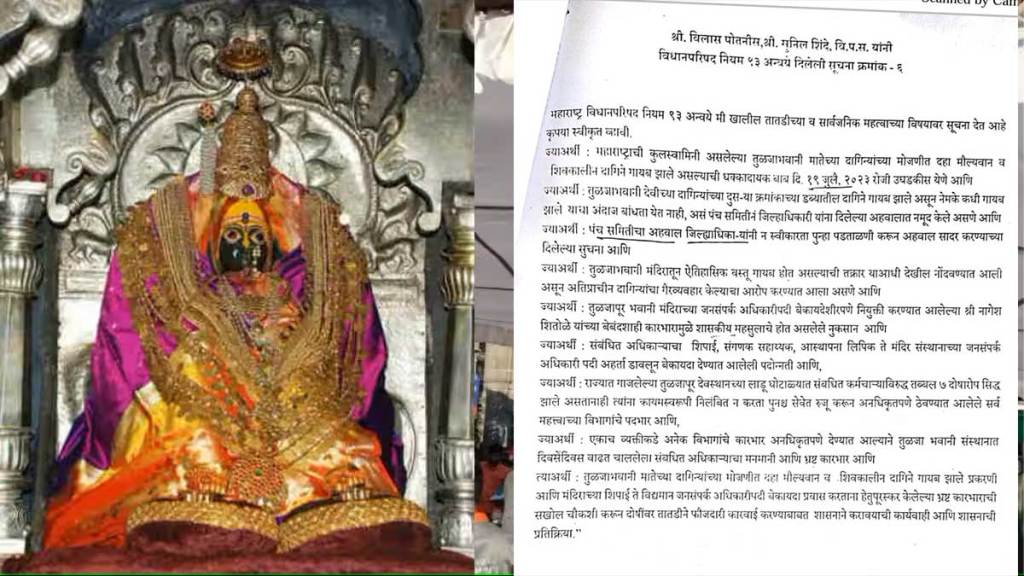 Scanned by Cam
श्री. विलास पोतनीस, श्री. सुनिल शिंदे, वि.प.स. यांनी
विधानपरिषद नियम ९३ अन्वये दिलेली सूचना क्रमांक - ६
महाराष्ट्र विधानपरिषद नियम ९३ अन्वये मी खालील तातडीच्या व सार्वजनिक महत्वाच्या विषयावर सूचना देत आहे
कृपया स्वीकृत व्हावी.
ज्याअर्थी : महाराष्ट्राची कुलस्वामिनी असलेल्या तुळजाभवानी मातेच्या दागिन्यांच्या मोजणीत दहा मौल्यवान व
शिवकालीन दागिने गायब झाले असल्याची धक्कादायक बाब दि. १९ जुलै, २०२३ रोजी उघडकीस येणे आणि
ज्याअर्थी : तुळजाभवानी देवीच्या दागिन्यांच्या दुस-या क्रमांकाच्या डब्यातील दागिने गायब झाले असून नेमके कधी गायब
झाले याचा अंदाज बांधता येत नाही, असं पंच समितीनं जिल्हाधिकारी यांना दिलेल्या अहवालात नमूद केले असणे आणि
ज्याअर्थी : पंच समितीचा अहवाल जिल्हाधिका-यांनी न स्वीकारता पुन्हा पडताळणी करून अहवाल सादर करण्याच्या
दिलेल्या सुचना आणि
ज्याअर्थी : तुळजाभवानी मंदिरातून ऐतिहासिक वस्तू गायब होत असल्याची तक्रार याआधी देखील नोंदवण्यात आली
असून अतिप्राचीन दागिन्यांचा गैरव्यवहार केल्याचा आरोप करण्यात आला असणे आणि
ज्याअर्थी : तुळजापूर भवानी मंदिराच्या जनसंपर्क अधिकारीपदी बेकायदेशीरपणे नियुक्ती करण्यात आलेल्या श्री नागेश
शितोळे यांच्या बेबंदशाही कारभारामुळे शासकीय महसुलाचे होत असलेले नुकसान आणि
ज्याअर्थी : संबंधित अधिकाऱ्याचा शिपाई, संगणक सहाय्यक, आस्थापना लिपिक ते मंदिर संस्थानाच्या जनसंपर्क
अधिकारी पदी अहर्ता डावलून बेकायदा देण्यात आलेली पदोन्नती आणि,
ज्याअर्थी : राज्यात गाजलेल्या तुळजापूर देवस्थानच्या लाडू घोटाळ्यात संबधित कर्मचाऱ्याविरुद्ध तब्बल ७ दोषारोप सिद्ध
झाले असतानाही त्यांना कायमस्वरूपी निलंबित न करता पुनश्च सेवेत रुजू करून अनधिकृतपणे ठेवण्यात आलेले सर्व
महत्त्वाच्या विभागांचे पदभार आणि,
ज्याअर्थी : एकाच व्यक्तीकडे अनेक विभागांचे कारभार अनधिकृतपणे देण्यात आल्याने तुळजा भवानी संस्थानात
दिवसेंदिवस वाढत चाललेला संबधित अधिकाऱ्याचा मनमानी आणि भ्रष्ट कारभार आणि
त्याअर्थी : तुळजाभवानी मातेच्या दागिन्यांच्या मोजणीत दहा मौल्यवान व शिवकालीन दागिने गायब झाले प्रकरणी
आणि मंदिराच्या शिपाई ते विद्यमान जनसंपर्क अधिकारीपदी बेकायदा प्रवास करताना हेतुपूरस्कर केलेल्या भ्रष्ट कारभाराची
सखोल चौकशी करून दोषींवर तातडीने फौजदारी कारवाई करण्याबाबत शासनाने करावयाची कार्यवाही आणि शासनाची
प्रतिक्रिया."